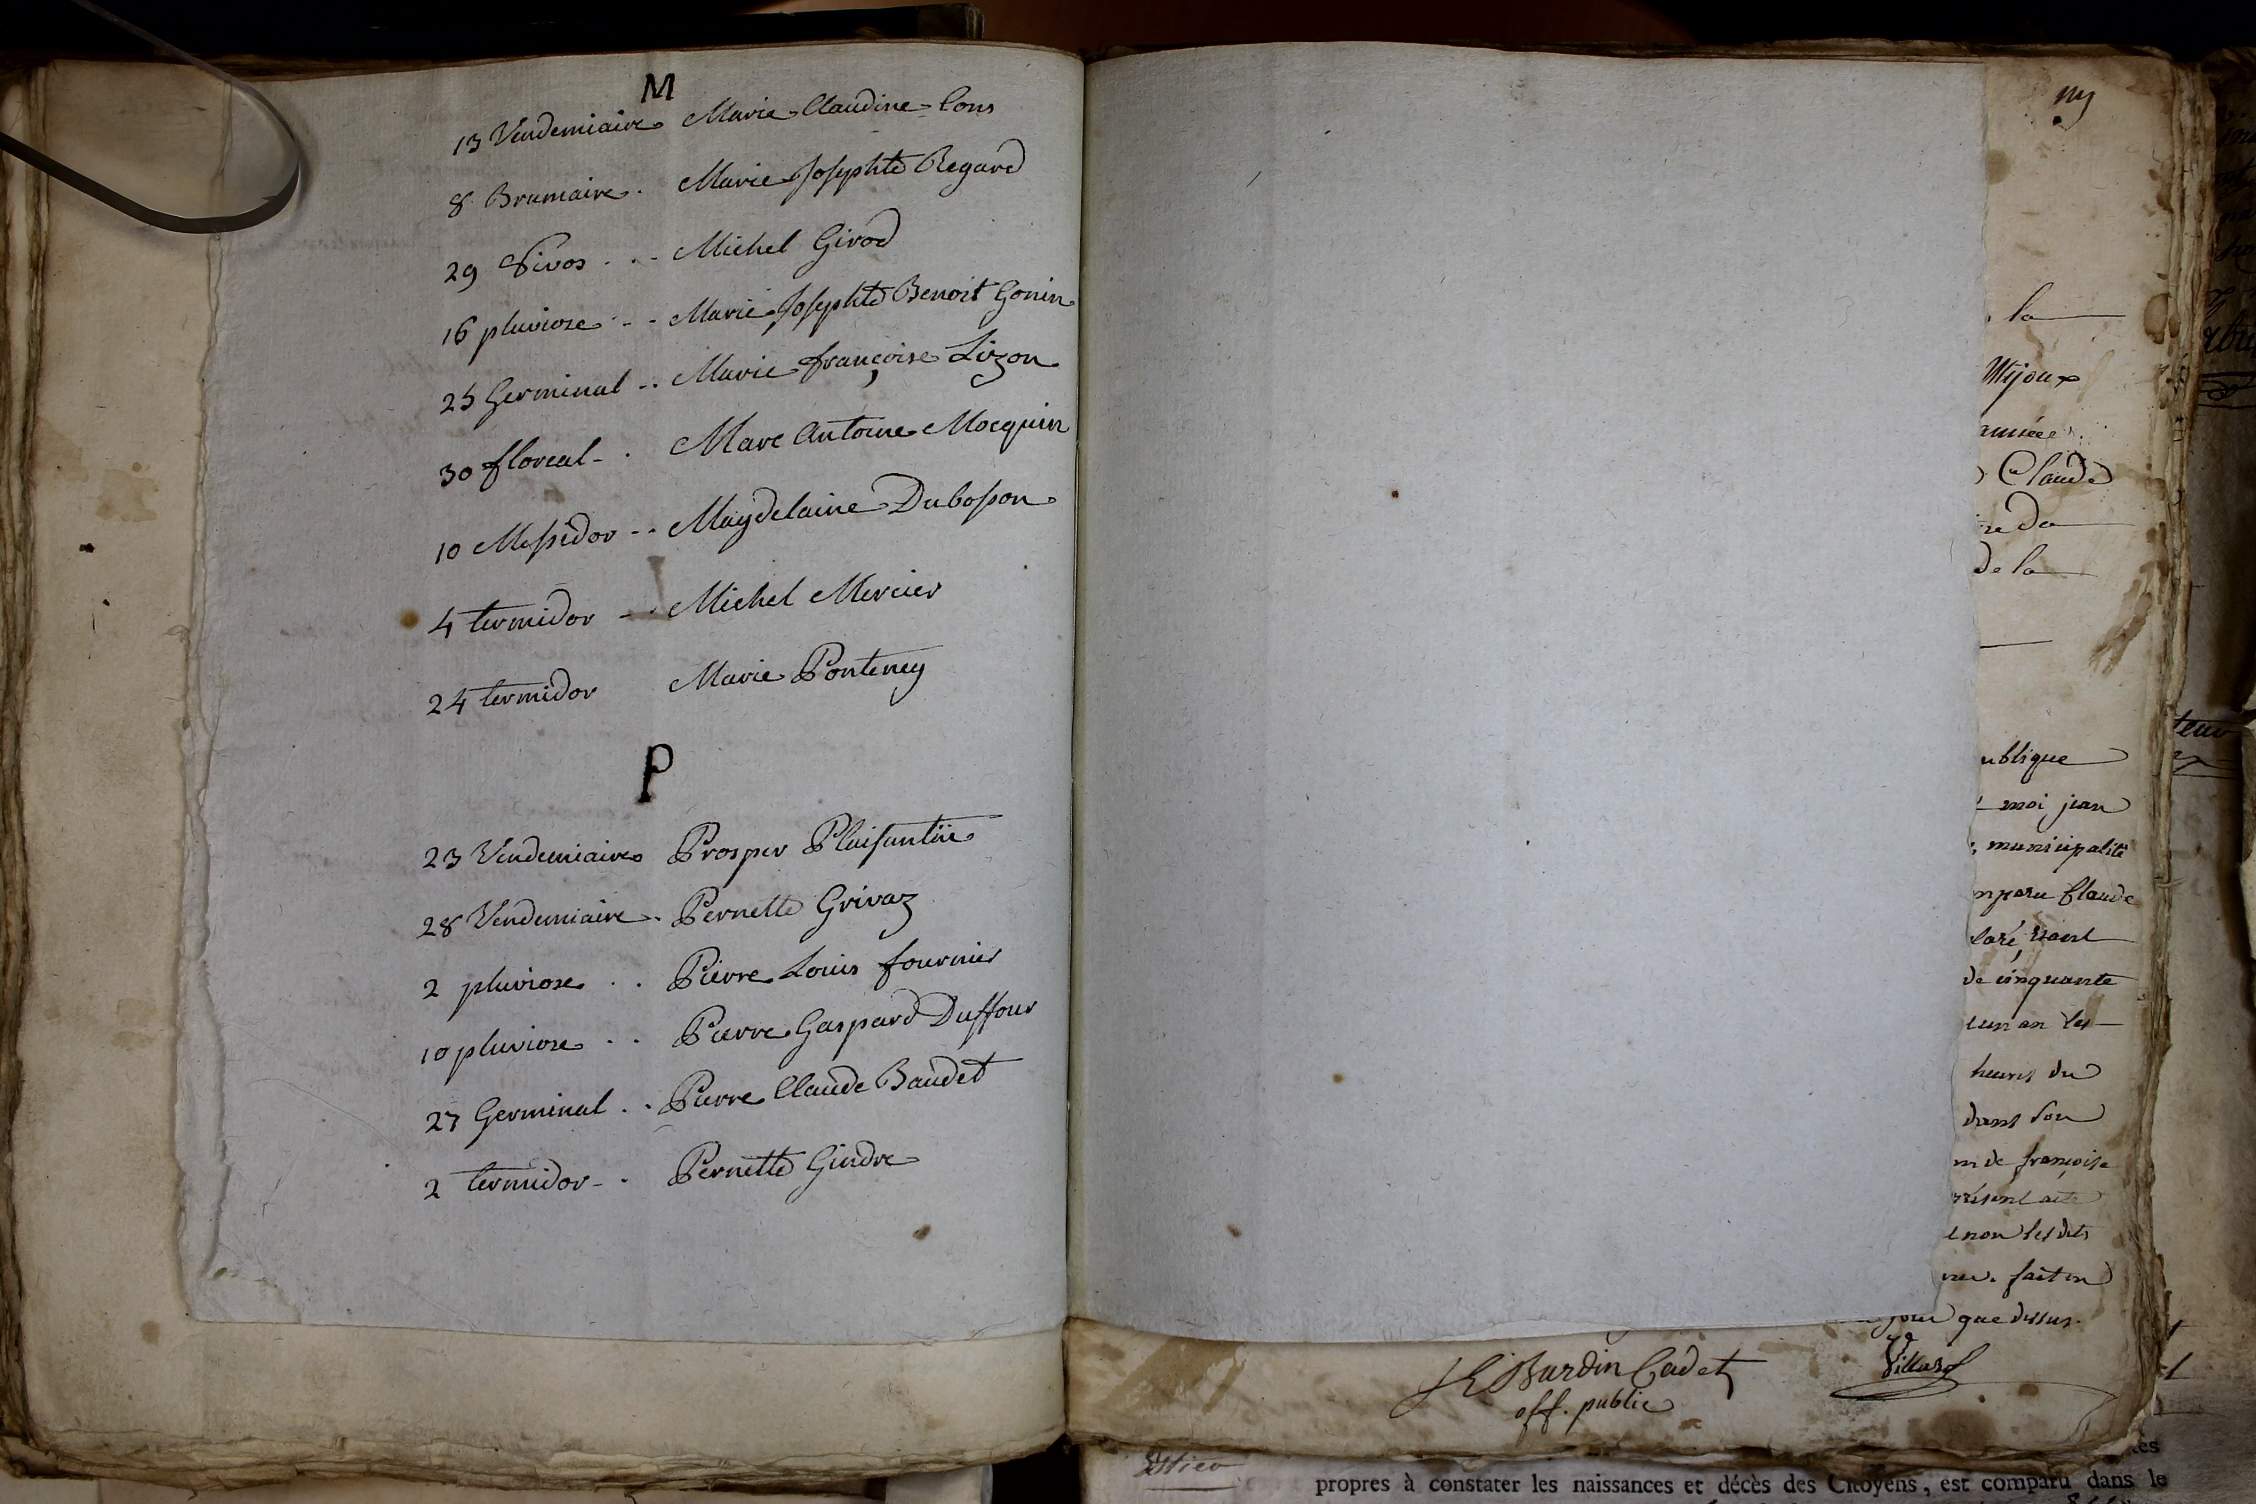 M
13 Vendemiaire Marie Claudine Cons
8 Brumaire . Marie Josephte Regard
29 Nivos . . - Michel Girod
16 pluviose - - Marie Josephte Benoit Gonin
25 Germinal - . Marie françoise Lizon
30 floreal - . Marc Antoine Mocquin
10 Messidor - - Magdelaine Dubosson
4 termidor - . Michel Mercier
24 termidor Marie Ponteney
P
23 Vendemiaire Prosper Plaisantin
28 Vendemiaire . Pernette Grivaz
2 pluviose . . Pierre Louis fournier
10 pluviose . . Pierre Gaspard Duffour
27 Germinal . . Pierre Claude Baudet
2 termidor - . Pernette Gindre
la
Mijoux
année
Claude
de la
ublique
moi jean
municipalité
mparu Claude
de cinquante
un an les
heures du
dans son
de françoise
résent acte
non lesdits
fait en
jour que dessus.
Bardin Cadet
off. public
Villard
propres à constater les naissances et décès des Citoyens, est comparu dans le